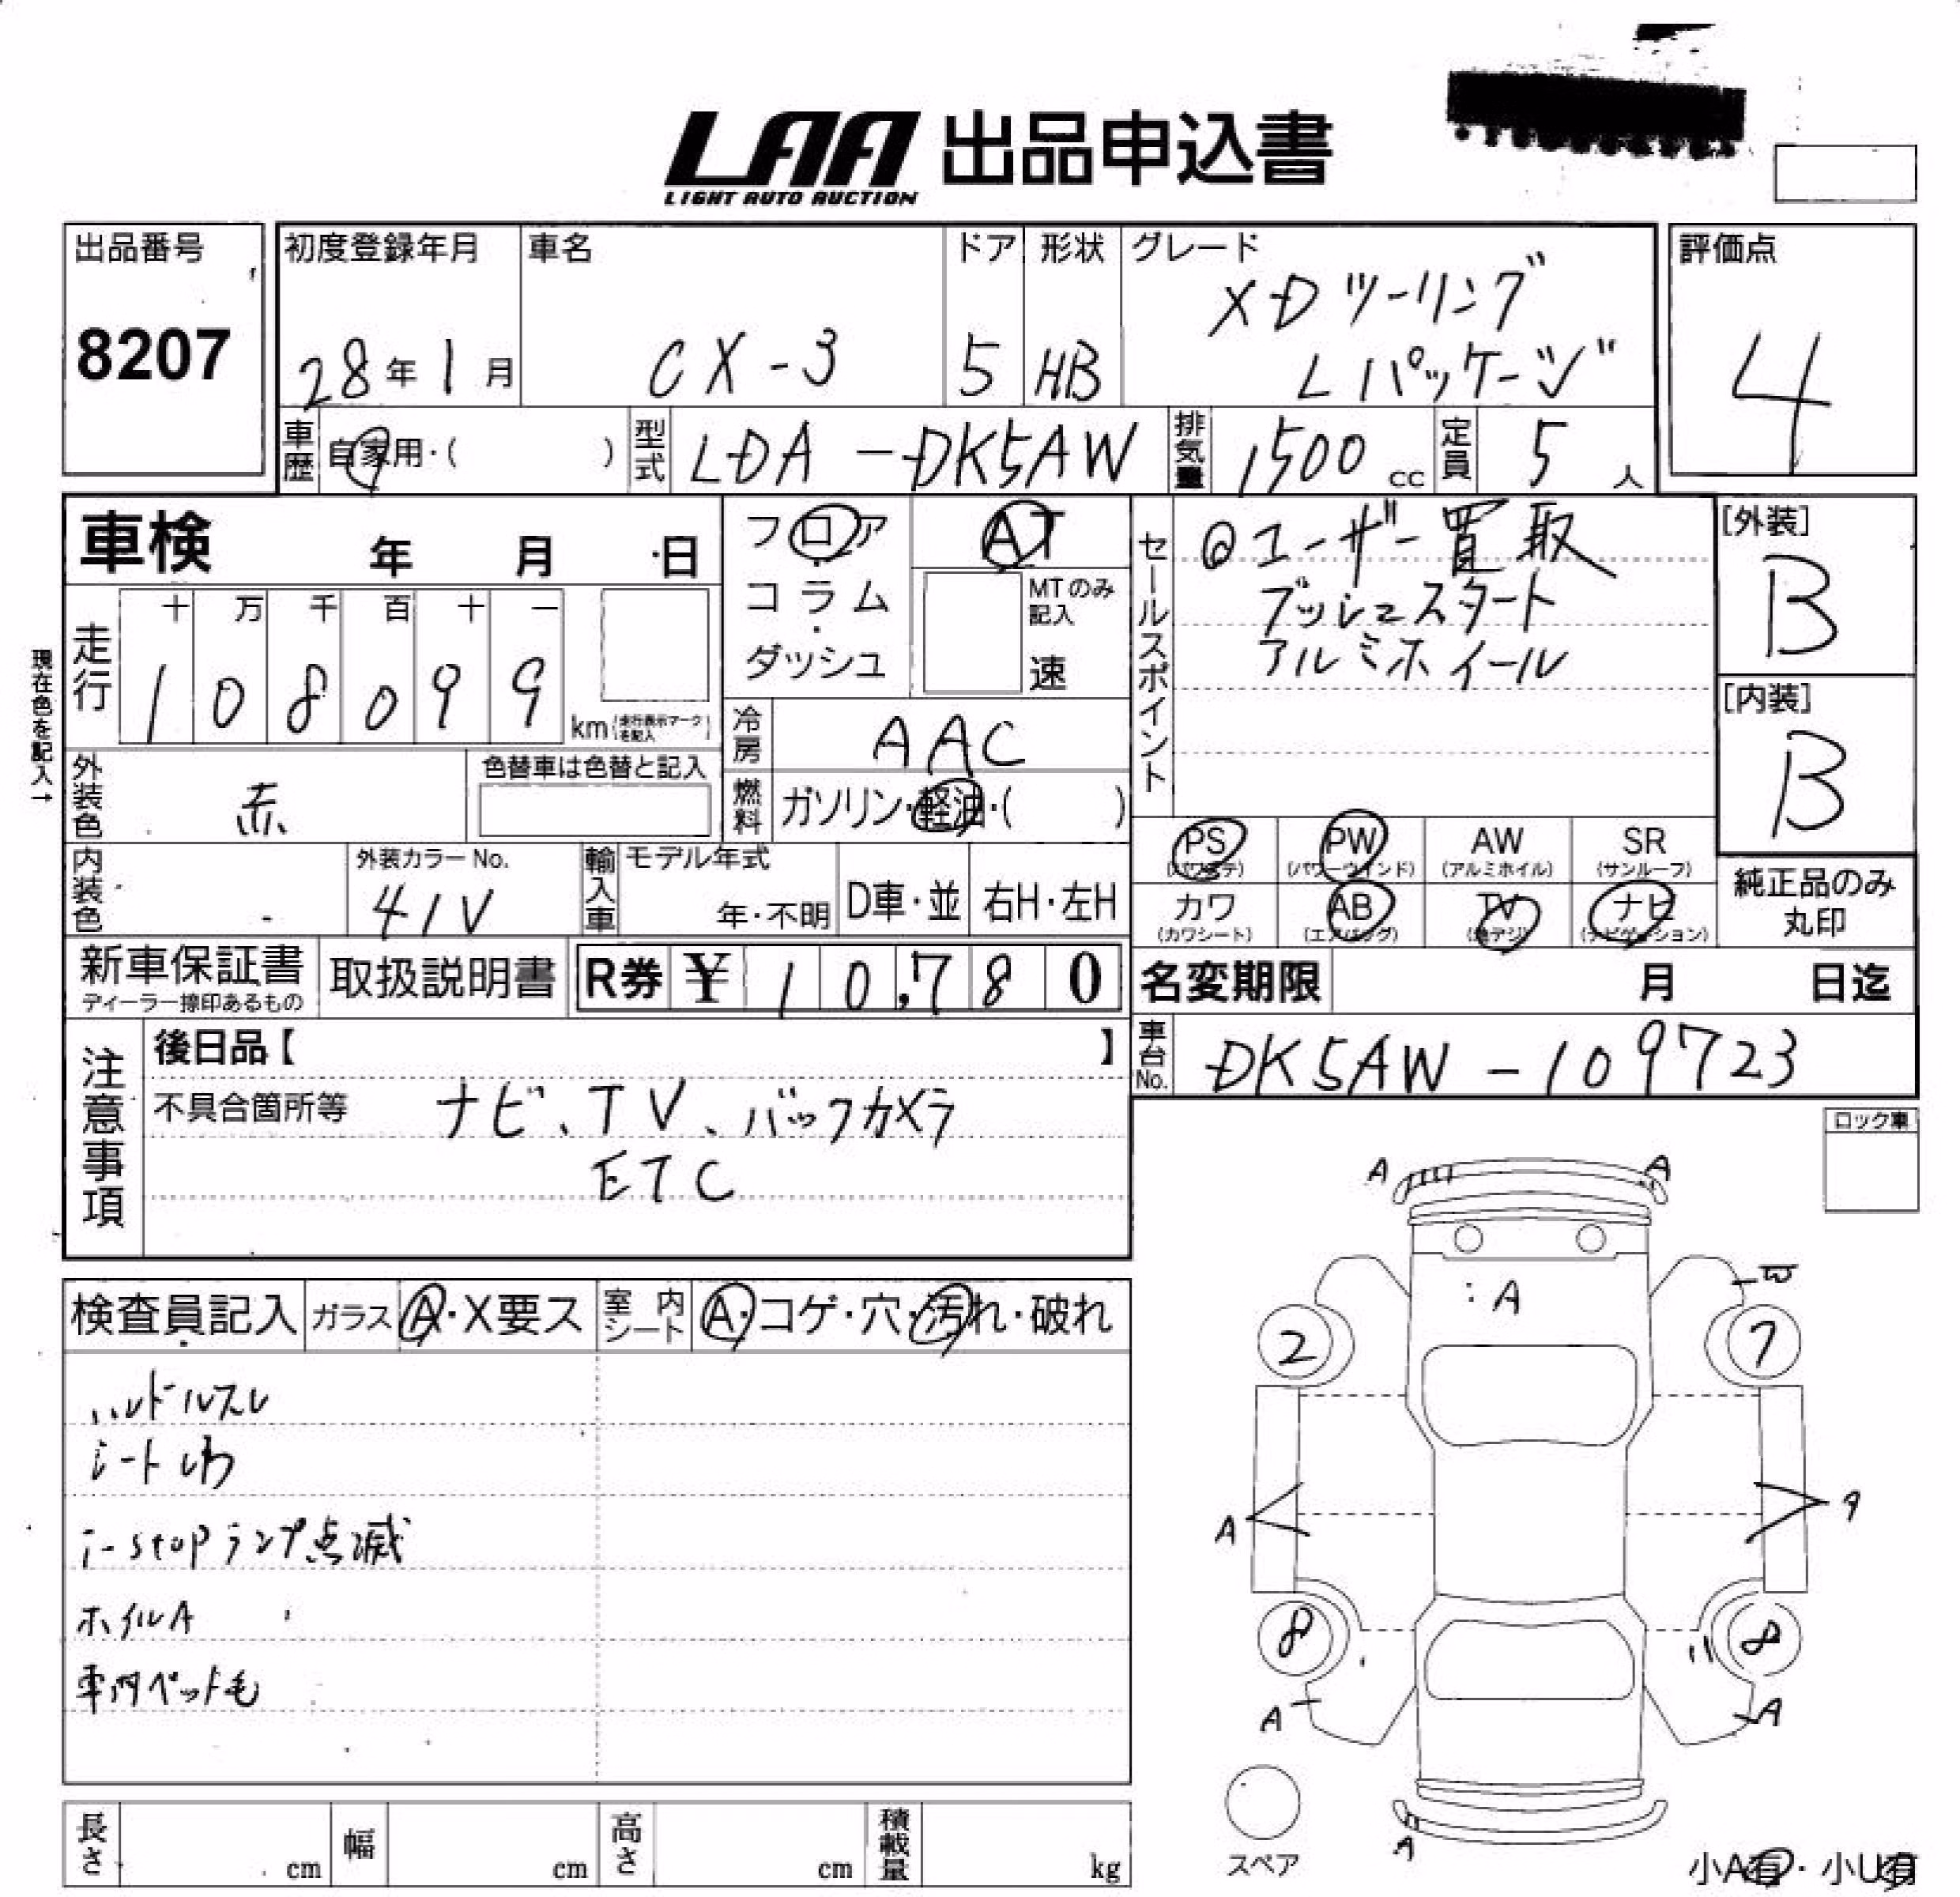 LAA 出品申込書
LIGHT AUTO AUCTION
出品番号
8207
初度登録年月
28年1月
車名
CX-3
ドア
5
形状
HB
グレード
XDツーリング
Lパッケージ
評価点
4
車歴
自家用・( )
型式
LDA-DK5AW
排気量
1500cc
定員
5人
車検 年 月 日
フロア
コラム
ダッシュ
AT
MTのみ
記入
速
セールスポイント
@ユーザー買取
プッシュスタート
アルミホイール
[外装]
B
[内装]
B
現在色を記入→
走行
十 万 千 百 十 一
1 0 8 0 9 9
km(走行表示マークを記入)
冷房
AAC
外装色
赤
色替車は色替と記入
燃料
ガソリン・軽油・( )
内装色
外装カラーNo.
41V
輸入車
モデル年式
年・不明
D車・並
右H・左H
PS
(パワステ)
PW
(パワーウインド)
AW
(アルミホイル)
SR
(サンルーフ)
カワ
(カワシート)
AB
(エアバッグ)
TV
(地デジ)
ナビ
(ナビゲーション)
純正品のみ
丸印
新車保証書
ディーラー捺印あるもの
取扱説明書
R券 ¥10,780
名変期限 月 日迄
車台No.
DK5AW-109723
注意事項
後日品【 】
不具合箇所等
ナビ、TV、バックカメラ
ETC
ロック車
検査員記入
ガラス A・X要ス
室内シート A・コゲ・穴・汚れ・破れ
ハンドルスレ
シートしわ
i-stopランプ点滅
ホイルA
車内ペット毛
A
A
A
W
2
7
A
A
8
8
A
A
A
スペア
小A有・小U有
長さ cm
幅 cm
高さ cm
積載量 kg